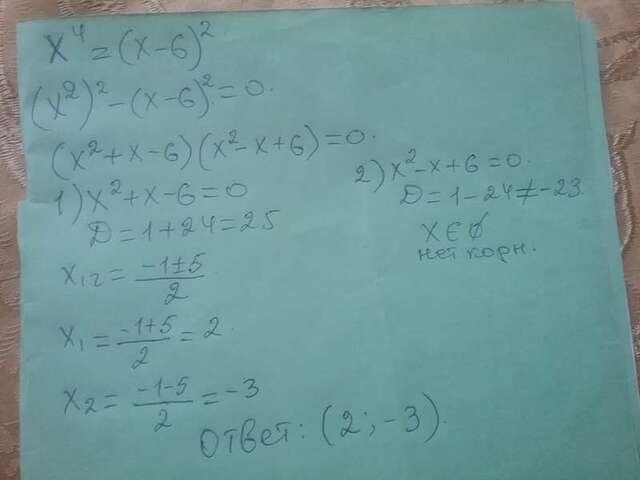 x⁴ = (x-6)²
(x²)² - (x-6)² = 0.
(x² + x - 6)(x² - x + 6) = 0.
1) x² + x - 6 = 0
D = 1 + 24 = 25
x₁,₂ = (-1±5)/2
x₁ = (-1+5)/2 = 2
x₂ = (-1-5)/2 = -3
2) x² - x + 6 = 0.
D = 1 - 24 ≠ -23
x ∈ ∅
нет корн.
Ответ: (2; -3).